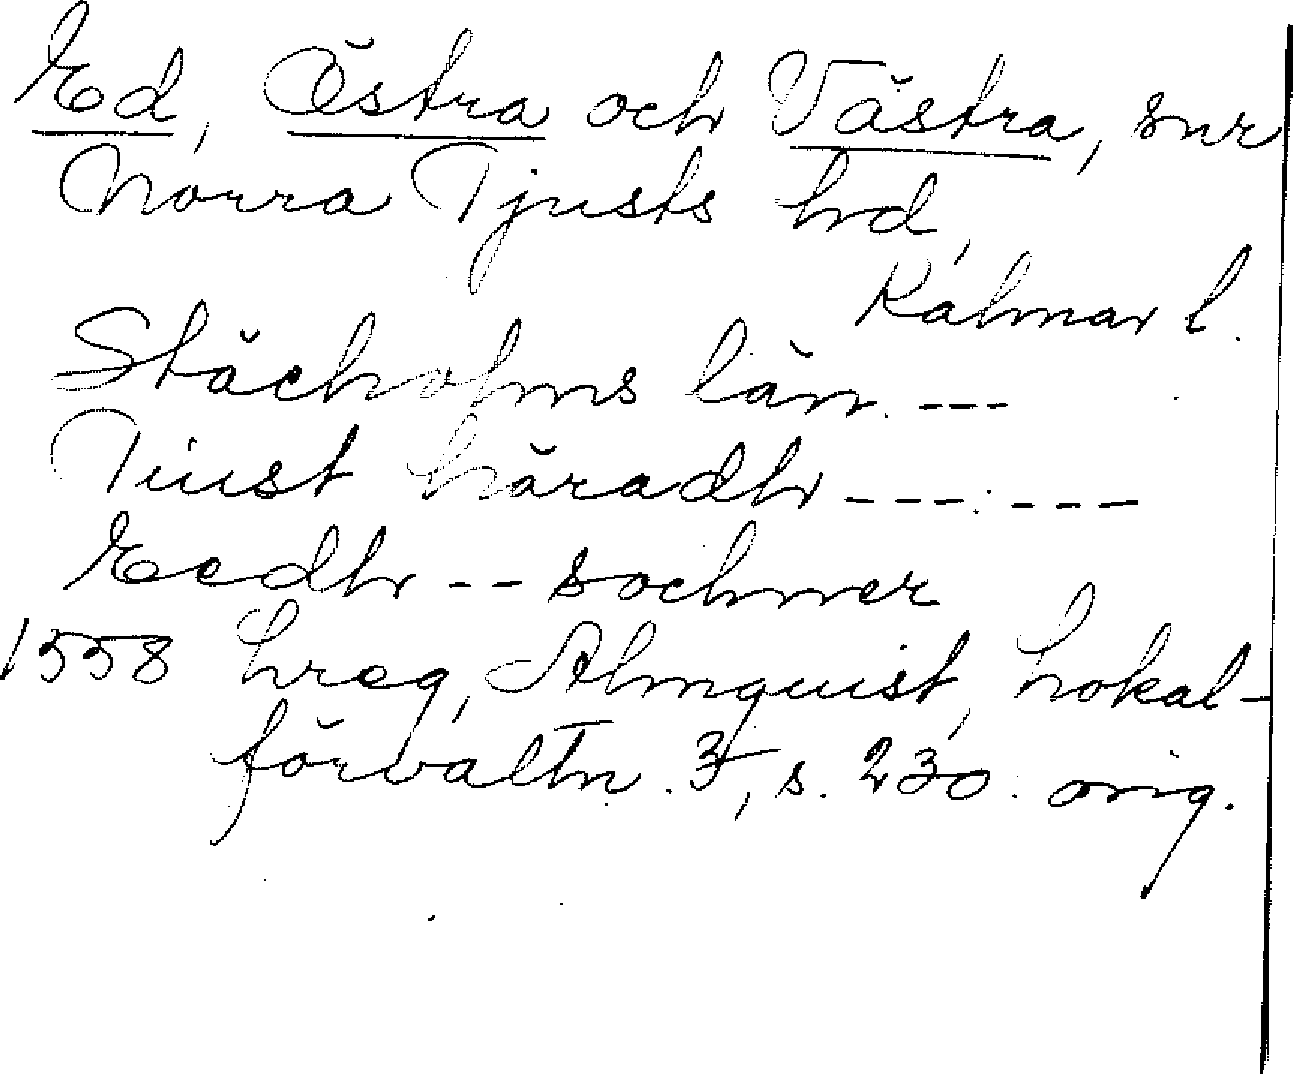 Ed, Östra och Västra, snr
Norra Tjusts hd,
Kalmar l.
Stächolms län. ---
Tiust häradh --- . ---
Eedh -- sochner
1558 Lreg, Almquist, Lokal-
förvaltn. 3, s. 230. orig.